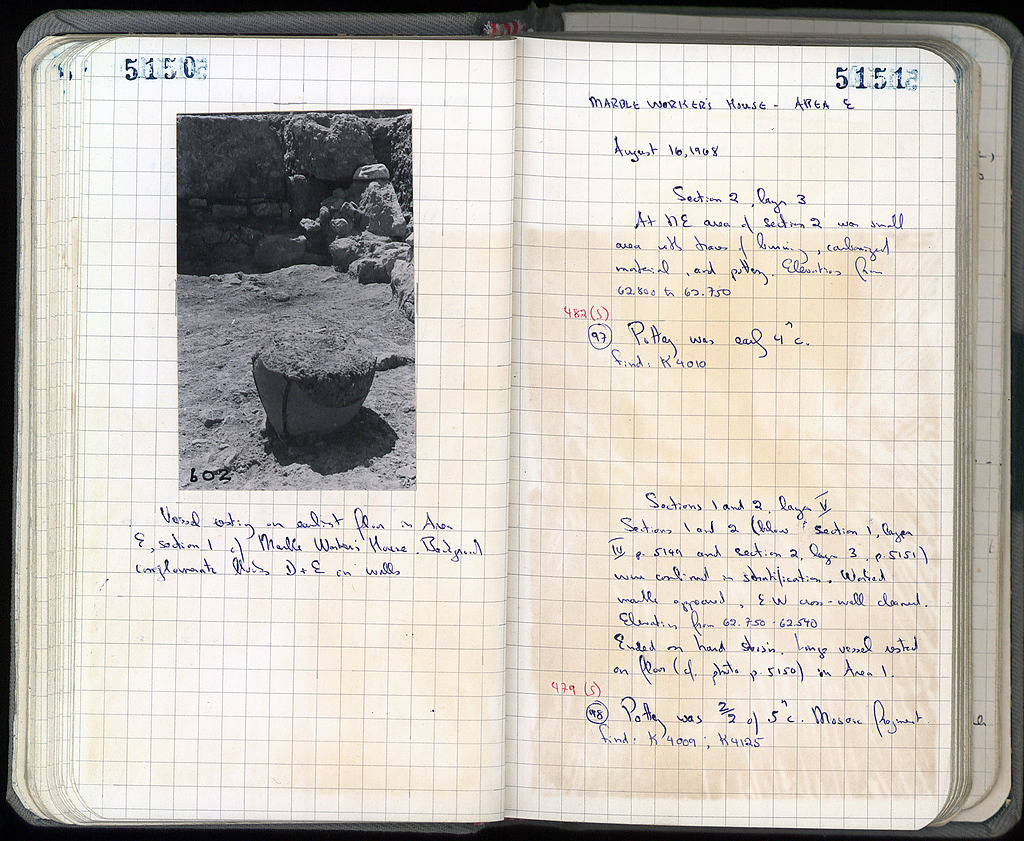 5150
602
Vessel resting on earliest floor in Area
E, section 1 of Marble Worker's House. Background
conglomerate blocks D + E on walls
5151
MARBLE WORKER'S HOUSE - AREA E
August 16, 1968
Section 2, layer 3
At NE area of section 2 was small
area with traces of burning, carbonized
material, and pottery. Elevations from
62.800 to 62.750
482 (S)
97 Pottery was early 4th c.
find: K 4010
Sections 1 and 2, layer V
Sections 1 and 2 (below section 1, layer
IV p. 5149 and section 2, layer 3 p. 5151)
were combined in stratification. Worked
marble appeared, EW cross-wall cleaned.
Elevation from 62.750 - 62.540
Ended on hard Large vessel rested
on floor (cf. photo p. 5150) in Area 1.
479 (S)
98 Pottery was 2/2 of 5th c. Mosaic fragment.
find: K 4009; K4125